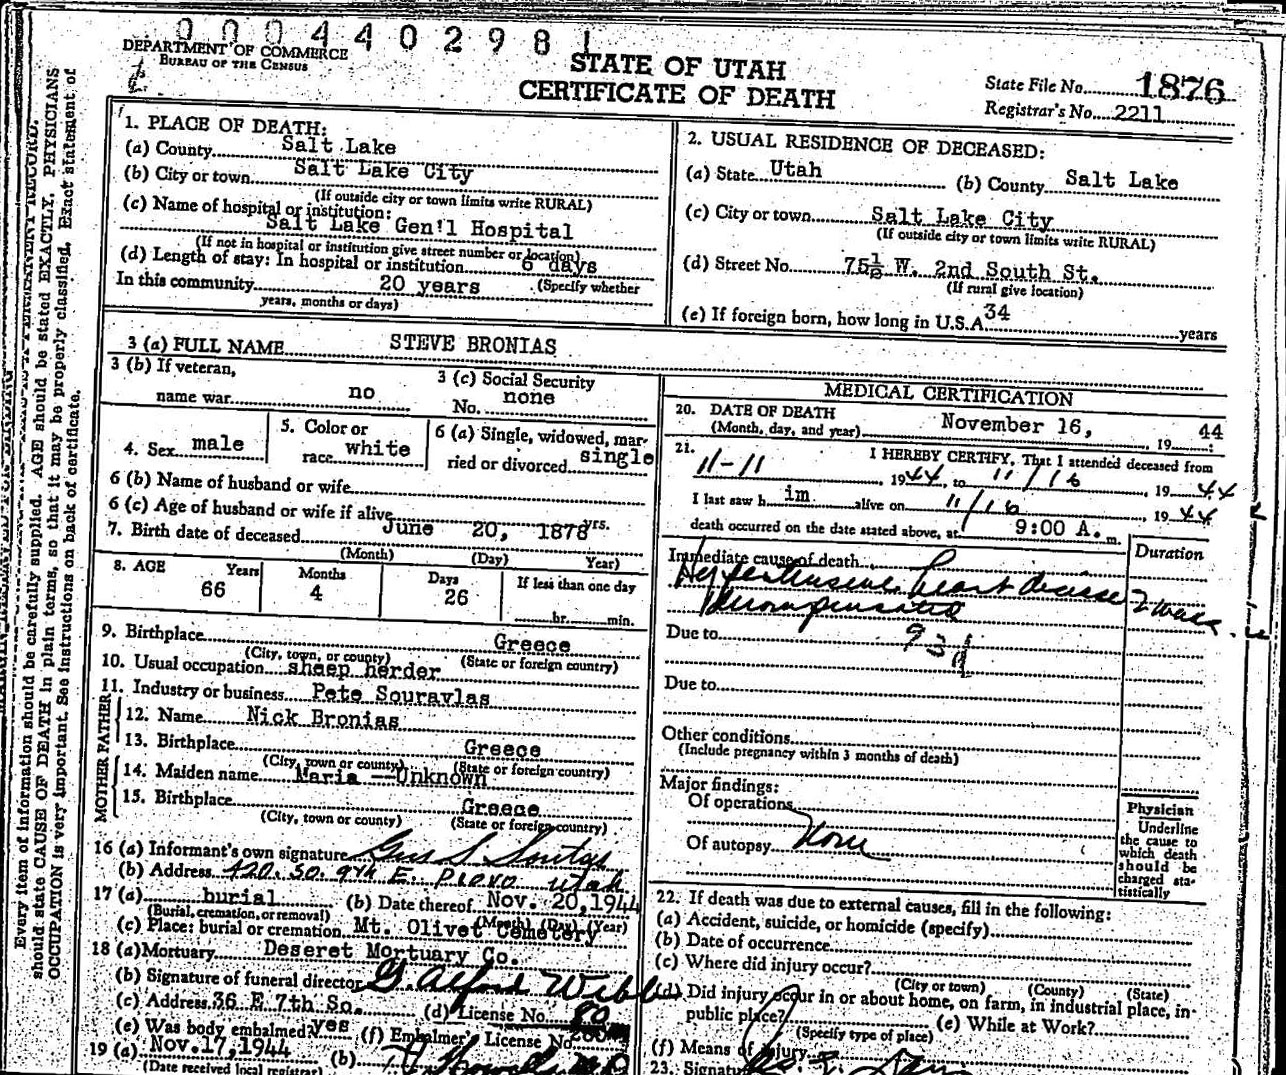 0004402981
DEPARTMENT OF COMMERCE
BUREAU OF THE CENSUS
STATE OF UTAH
CERTIFICATE OF DEATH
State File No. 1876
Registrar's No. 2211
1. PLACE OF DEATH:
(a) County Salt Lake
(b) City or town Salt Lake City
(If outside city or town limits write RURAL)
(c) Name of hospital or institution:
Salt Lake Gen'l Hospital
(If not in hospital or institution give street number or location)
(d) Length of stay: In hospital or institution 6 days
In this community 20 years (Specify whether
years, months or days)
2. USUAL RESIDENCE OF DECEASED:
(a) State Utah (b) County Salt Lake
(c) City or town Salt Lake City
(If outside city or town limits write RURAL)
(d) Street No. 75½ W. 2nd South St.
(If rural give location)
(e) If foreign born, how long in U.S.A 34 years
3 (a) FULL NAME STEVE BRONIAS
3 (b) If veteran,
name war no
3 (c) Social Security
No. none
4. Sex male
5. Color or
race white
6 (a) Single, widowed, mar-
ried or divorced single
6 (b) Name of husband or wife
6 (c) Age of husband or wife if alive yrs.
7. Birth date of deceased June 20, 1878
(Month) (Day) Year)
8. AGE Years Months Days If less than one day
66 4 26 hr. min.
9. Birthplace Greece
(City, town, or county) (State or foreign country)
10. Usual occupation sheep herder
11. Industry or business Pete Souravlas
FATHER
12. Name Nick Bronias
13. Birthplace Greece
(City, town or county) (State or foreign country)
MOTHER
14. Maiden name Maria --Unknown
15. Birthplace Greece
(City, town or county) (State or foreign country)
16 (a) Informant's own signature Gus S
(b) Address 420. So. 9th E. Provo Utah
17 (a) burial (b) Date thereof Nov. 20, 1944
(Burial, cremation, or removal) (Month) (Day) (Year)
(c) Place: burial or cremation Mt. Olivet Cemetery
18 (a) Mortuary Deseret Mortuary Co.
(b) Signature of funeral director G. Alford Webb
(c) Address 36 E 7th So. (d) License No. 80
(e) Was body embalmed? yes (f) Embalmer's License No.
19 (a) Nov. 17, 1944 (b)
(Date received local registrar)
MEDICAL CERTIFICATION
20. DATE OF DEATH
(Month, day, and year) November 16, 19 44
21. I HEREBY CERTIFY, That I attended deceased from
11-11 1944, to 11/16, 19 44
I last saw h im alive on 11/16 19 44
death occurred on the date stated above, at 9:00 A. m.
Immediate cause of death Duration
Hypertensive heart disease 2 weeks
decompensated
Due to 93d
Due to
Other conditions
(Include pregnancy within 3 months of death)
Major findings:
Of operations
Of autopsy None
Physician
Underline
the cause to
which death
should be
charged sta-
tistically
22. If death was due to external causes, fill in the following:
(a) Accident, suicide, or homicide (specify)
(b) Date of occurrence
(c) Where did injury occur?
(City or town) (County) (State)
(d) Did injury occur in or about home, on farm, in industrial place, in-
public place? (e) While at Work?
(Specify type of place)
(f) Means of injury
23. Signature
Every item of information should be carefully supplied. AGE should be stated EXACTLY. PHYSICIANS
should state CAUSE OF DEATH in plain terms, so that it may be properly classified. Exact statement of
OCCUPATION is very important. See instructions on back of certificate.